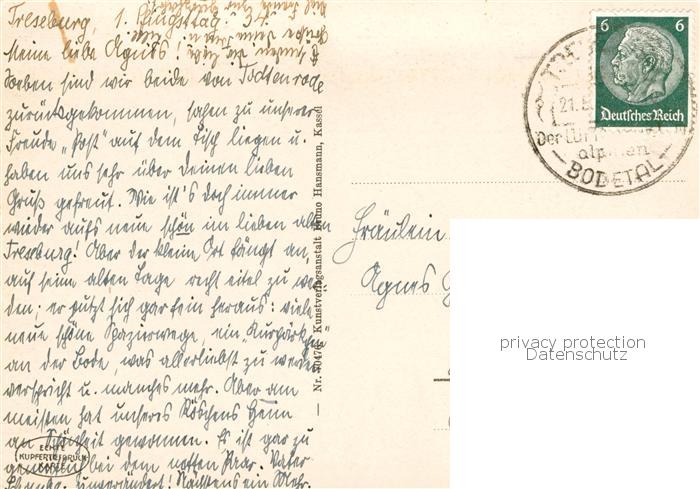 Treseburg, 1. Pfingsttag. 34.
Meine liebe Agnes!
Soeben sind wir beide von Todtenrode
zurückgekommen, sahen zu unserer
Freude „Post“ auf dem Tisch liegen u.
haben uns sehr über Deinen lieben
Gruß gefreut. Wie ist's doch immer
wieder aufs neue schön im lieben alten
Treseburg! Aber der kleine Ort fängt an,
auf seine alten Tage recht eitel zu wer-
den; er putzt sich gar fein heraus: viele
neue schöne Spazierwege, ein „Kurpärkchen“
an der Bode, was allerliebst zu werden
verspricht u. manches mehr. Aber am
meisten hat unseres Röschens Heim
an Schönheit gewonnen. Es ist gar zu
gemütlich bei dem netten Paar. Vater
unverändert! Nächstens ein Mehr.
ECHTE
KUPFERTIEFDRUCK
KARTE
— Nr. 30476 Kunstverlagsanstalt Bruno Hansmann, Kassel
6 6
Deutsches Reich
21.
Der Luft
alpinen
— BODETAL —
Fräulein
Agnes G
privacy protection
Datenschutz